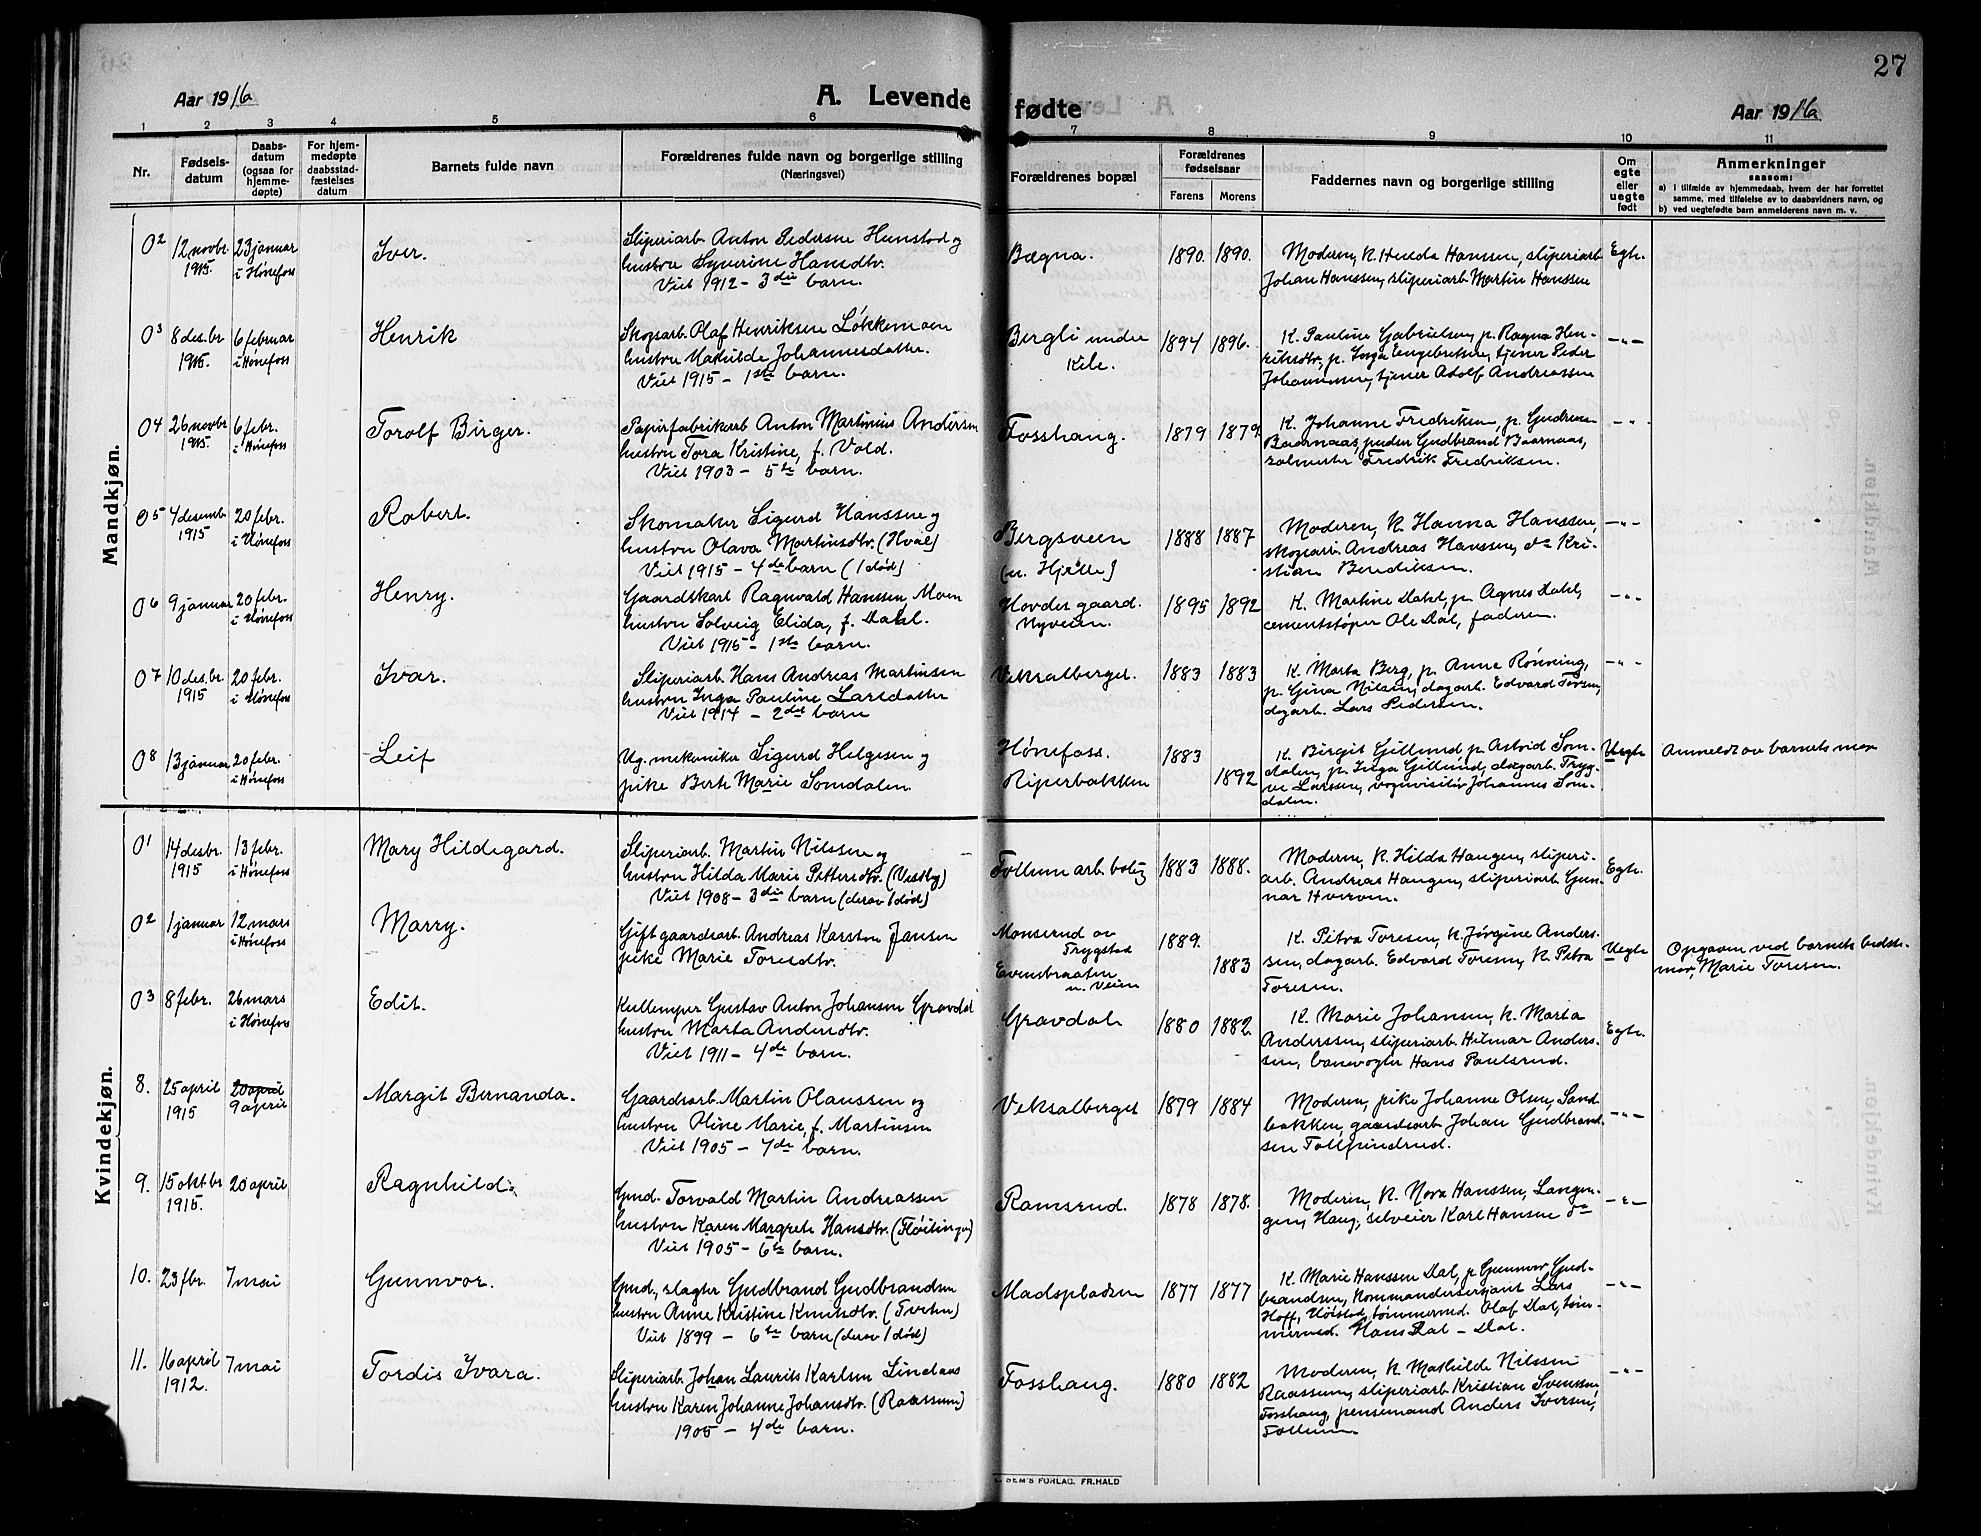 27
Aar 1916a
A. Levende fødte
Aar 1916a
1 2 3 4 5 6 7 8 9 10 11
Nr.
Fødsels-
datum
Daabs-
datum
(ogsaa for
hjemme-
døpte)
For hjem-
medøpte
daabsstad-
fæstelses
datum
Barnets fulde navn
Forældrenes fulde navn og borgerlige stilling
(Næringsvei)
Forældrenes bopæl
Forældrenes
fødselsaar
Farens Morens
Faddernes navn og borgerlige stilling
Om
egte
eller
uegte
født
Anmerkninger
saasom:
a) i tilfælde av hjemmedaab, hvem der har forrettet
samme, med tilføielse av to daabsvidners navn, og
b) ved uegtefødte barn anmelderens navn m. v.
Mandkjøn.
02 12 novbr. 23 januar Iver. Sliperiarb. Anton Pedersen Hunstad og Bægna. 1890. 1890. Moderen, K. Hulda Hanssen, sliperiarb. Egte.
1915 i Hønefoss hustru Syverine Hansdtr. Johan Hanssen, sliperiarb. Martin Hanssen
Viet 1912 – 3die barn.
03 8 desbr. 6 februar Henrik Skogsarb. Olaf Henriksen Løkkemoen Bergli under 1894 1896. K. Pauline Gabrielsen, p. Ragna Hen- -"-
1915. i Hønefoss hustru Mathilde Johannesdatter. Kile. riksdtr, p. Inga Engebretsen, tjener Peder
Viet 1915 – 1ste barn. Johannessen, tjener Adolf Andreassen
04 26 novbr 6 febr. Torolf Birger. Papirfabrikarb Anton Martinius Andersen Fosshaug. 1879 1879 K. Johanne Fredriksen, p. Gudrun -"-
1915 i Hønefoss hustru Tora Kristine, f. Vold. Baarnaas, Gudbrand Baarnaas,
Viet 1903 – 5te barn. Fredrik Fredriksen.
05 4 desemb. 20 febr. Robert. Skomaker Sigurd Hanssen og Bergsveen 1888 1887 Moderen, K. Hanna Hanssen, -"-
1915 i Hønefoss hustru Olava Martinsdtr. (Hval) skogsarb. Andreas Hanssen, do Kri-
Viet 1915 – 4de barn (1 død) stian Bendiksen.
06 9 januar 20 febr. Henry. Gaardskarl Ragnvald Hanssen, Moen Hovdes gaard. 1895 1892 K. Martine Dahl, p. Agnes Dahl, -"-
i Hønefoss hustru Solveig Elida, f. Dahl. Nyveien. cementstøper Ole Dal, faderen.
Viet 1915 – 1ste barn.
07 10 desbr. 20 febr. Ivar. Sliperiarb. Hans Andreas Martinsen Veksalberget. 1883 1883 K. Marta Berg, p. Anne Rønning, -"-
1915 i Hønefoss hustru Inga Pauline Larsdatter p. Gina Nilsen, dagarb. Edvard Toresen,
Viet 1914 – 2det barn dagarb. Lars Pedersen.
08 13 januar 20 febr. Leif Ug. mekaniker Sigurd Helgesen og Hønefoss. 1883 K. Birgit Gillund, p. Astrid Som- Uegte Anmeldt av barnets mor
i Hønefoss pike Berte Marie Somdalen. Riperbakken 1892 dalen, p. Inga Gillund, dagarb. Tryg-
ve Larssen, vognvisitør Johannes Som-
dalen.
Kvindekjøn.
01 14 desbr. 13 febr. Mary Hildegard. Sliperiarb. Martin Nilssen og Follum arb. bolig 1883 1888. Moderen, K. Hilda Haugen, sliperi- Egte.
1915 i Hønefoss hustru Hilda Marie Pettersdtr. (Vestby) arb. Andreas Haugen, sliperiarb. Gun-
Viet 1908 – 3die barn (derav 1 død) nar Hverven.
02 1 januar 12 mars Marry. Gift gaardsarb. Andreas Karsten Jansen Monserud av 1889. K. Petra Toresen, K. Jørgine Anders- Uegte Opgaven ved barnets bedste-
i Hønefoss pike Marie Toresdtr. Trygstad 1883 sen, dagarb. Edvard Toresen, K. Petra mor, Marie Toresen.
Evensbraaten Toresen.
u. Veien
03 8 febr. 26 mars Edit. Kullemper Gustav Anton Johansen Gravdal Gravdal 1880 1882 K. Marie Johansen, K. Marta Egte.
i Hønefoss hustru Marta Andersdtr. Anderssen, sliperiarb. Hilmar Anders-
Viet 1911 – 4de barn. sen, banevogter Hans Paulsrud.
8. 25 april 20 april Margit Bernanda. Gaardsarb. Martin Olaussen og Veksalberget 1879 1884 Moderen, pike Johanne Olsen, Sand- -"-
1915 9 april hustru Oline Marie, f. Martinsen bakken, gaardsarb. Johan Gudbrand-
Viet 1905 – 7de barn. sen Tollpindrud.
9. 15 oktbr 20 april Ragnhild. Gmd. Torvald Martin Andreassen Ramsrud. 1878 1878. Moderen, K. Nora Hanssen, Langen- -"-
1915. hustru Karen Margrete Hansdtr. gen, Haug, selveier Karl Hansen do
Viet 1905 – 6te barn.
10. 23 fbr. 7 mai Gunnvor. Gmd., slagter Gudbrand Gudbrandsen Madspladsen 1877 1877 K. Marie Hanssen Dal, p. Gunnvor Gud- -"-
hustru Anne Kristine Knutsdtr. (Tveten) brandsen, Kommandersersjant Lars
Viet 1899 – 6te barn (derav 1 død) Hoff, tømmermd. Olaf Dal, tøm-
mermd. Hans Dal – Dal.
11. 16 april 7 mai Tordis Ivara. Sliperiarb. Johan Laurits Karlsen Lindaas Fosshaug. 1880 1882 Moderen, K. Mathilde Nilssen -"-
1912. hustru Karen Johanne Johansdtr. (Raassum) Raassum, sliperiarb. Kristian Svenssen,
1905 – 4de barn. Fosshaug, pensemand Anders Iversen,
Follum.
SEM'S FORLAG. FR. HALD